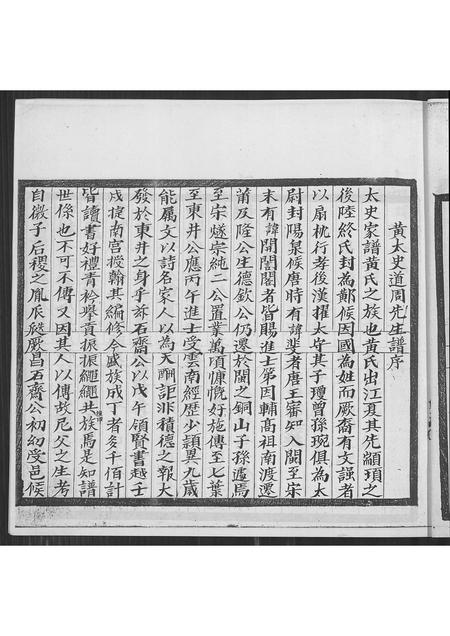 黃太史道周先生譜序
太史家譜黃氏之族也黃氏出江夏其先顓頊之
後陸終氏封為鄭侯因國為姓而厥裔有文强者
以扇枕行孝後漢擢太守其子瓊曾孫琬俱為太
尉封陽泉候唐時有諱斐者唐王審知入閩至宋
末有諱開誾闇者皆賜進士第因輔高祖南渡遷
莆及隆公生德欽公仍遷於閩之銅山子孫遽焉
至宋嫒宗純二公置業萬頃慷慨好施傳至七葉
至東井公應丙午進士受雲南經歷少頴異九歲
能属文以詩名家人以為天酬詎非積德之報大
發於東井之身乎茲石齋公以戊午領賢書越壬
戌捷南宫授翰其編修今盛族成丁者多千佰計
皆讀書好禮青衿舉貢振振繩繩共族焉是知譜
世係也不可不傳又因其人以傳故尼父之生考
自微子后稷之胤辰發厥昌石齋公初幼受邑候